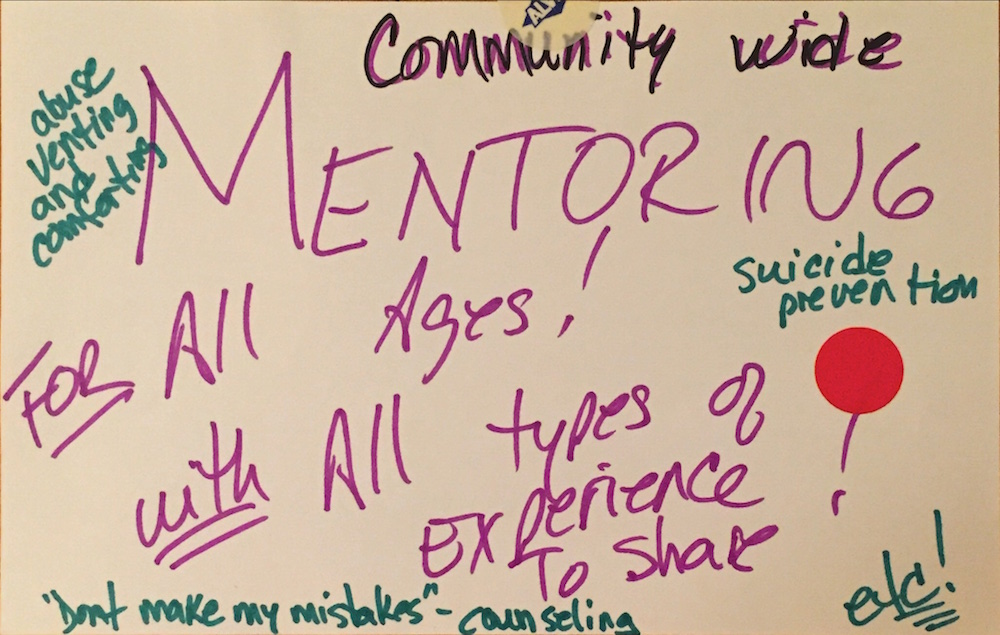 ALV
Community wide
abuse
venting
and
comforting
MENTORING
suicide
prevention
FOR All Ages!
with All types of
Experience
To share!
"Dont make my mistakes" - counseling
etc!